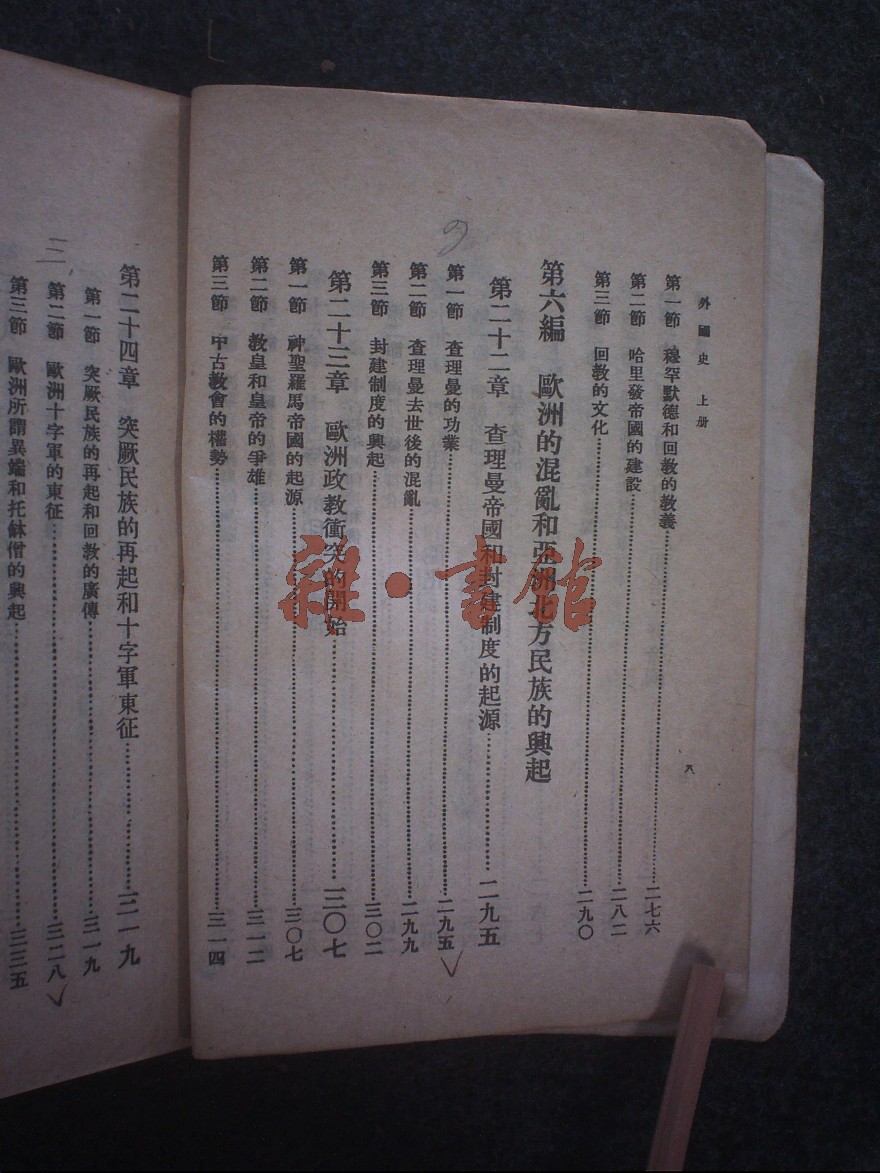 外國史 上册
八
第一節 穆罕默德和回教的教義……二七六
第二節 哈里發帝國的建設……二八二
第三節 回教的文化……二九〇
第六編 歐洲的混亂和亞洲北方民族的興起
第二十二章 查理曼帝國和封建制度的起源……二九五
第一節 查理曼的功業……二九五
第二節 查理曼去世後的混亂……二九九
第三節 封建制度的興起……三〇二
第二十三章 歐洲政教衝突的開始……三〇七
第一節 神聖羅馬帝國的起源……三〇七
第二節 教皇和皇帝的爭雄……三一二
第三節 中古教會的權勢……三一四
第二十四章 突厥民族的再起和十字軍東征……三一九
第一節 突厥民族的再起和回教的廣傳……三一九
第二節 歐洲十字軍的東征……三二八
第三節 歐洲所謂異端和托鉢僧的興起……三三五
三
雜·書館